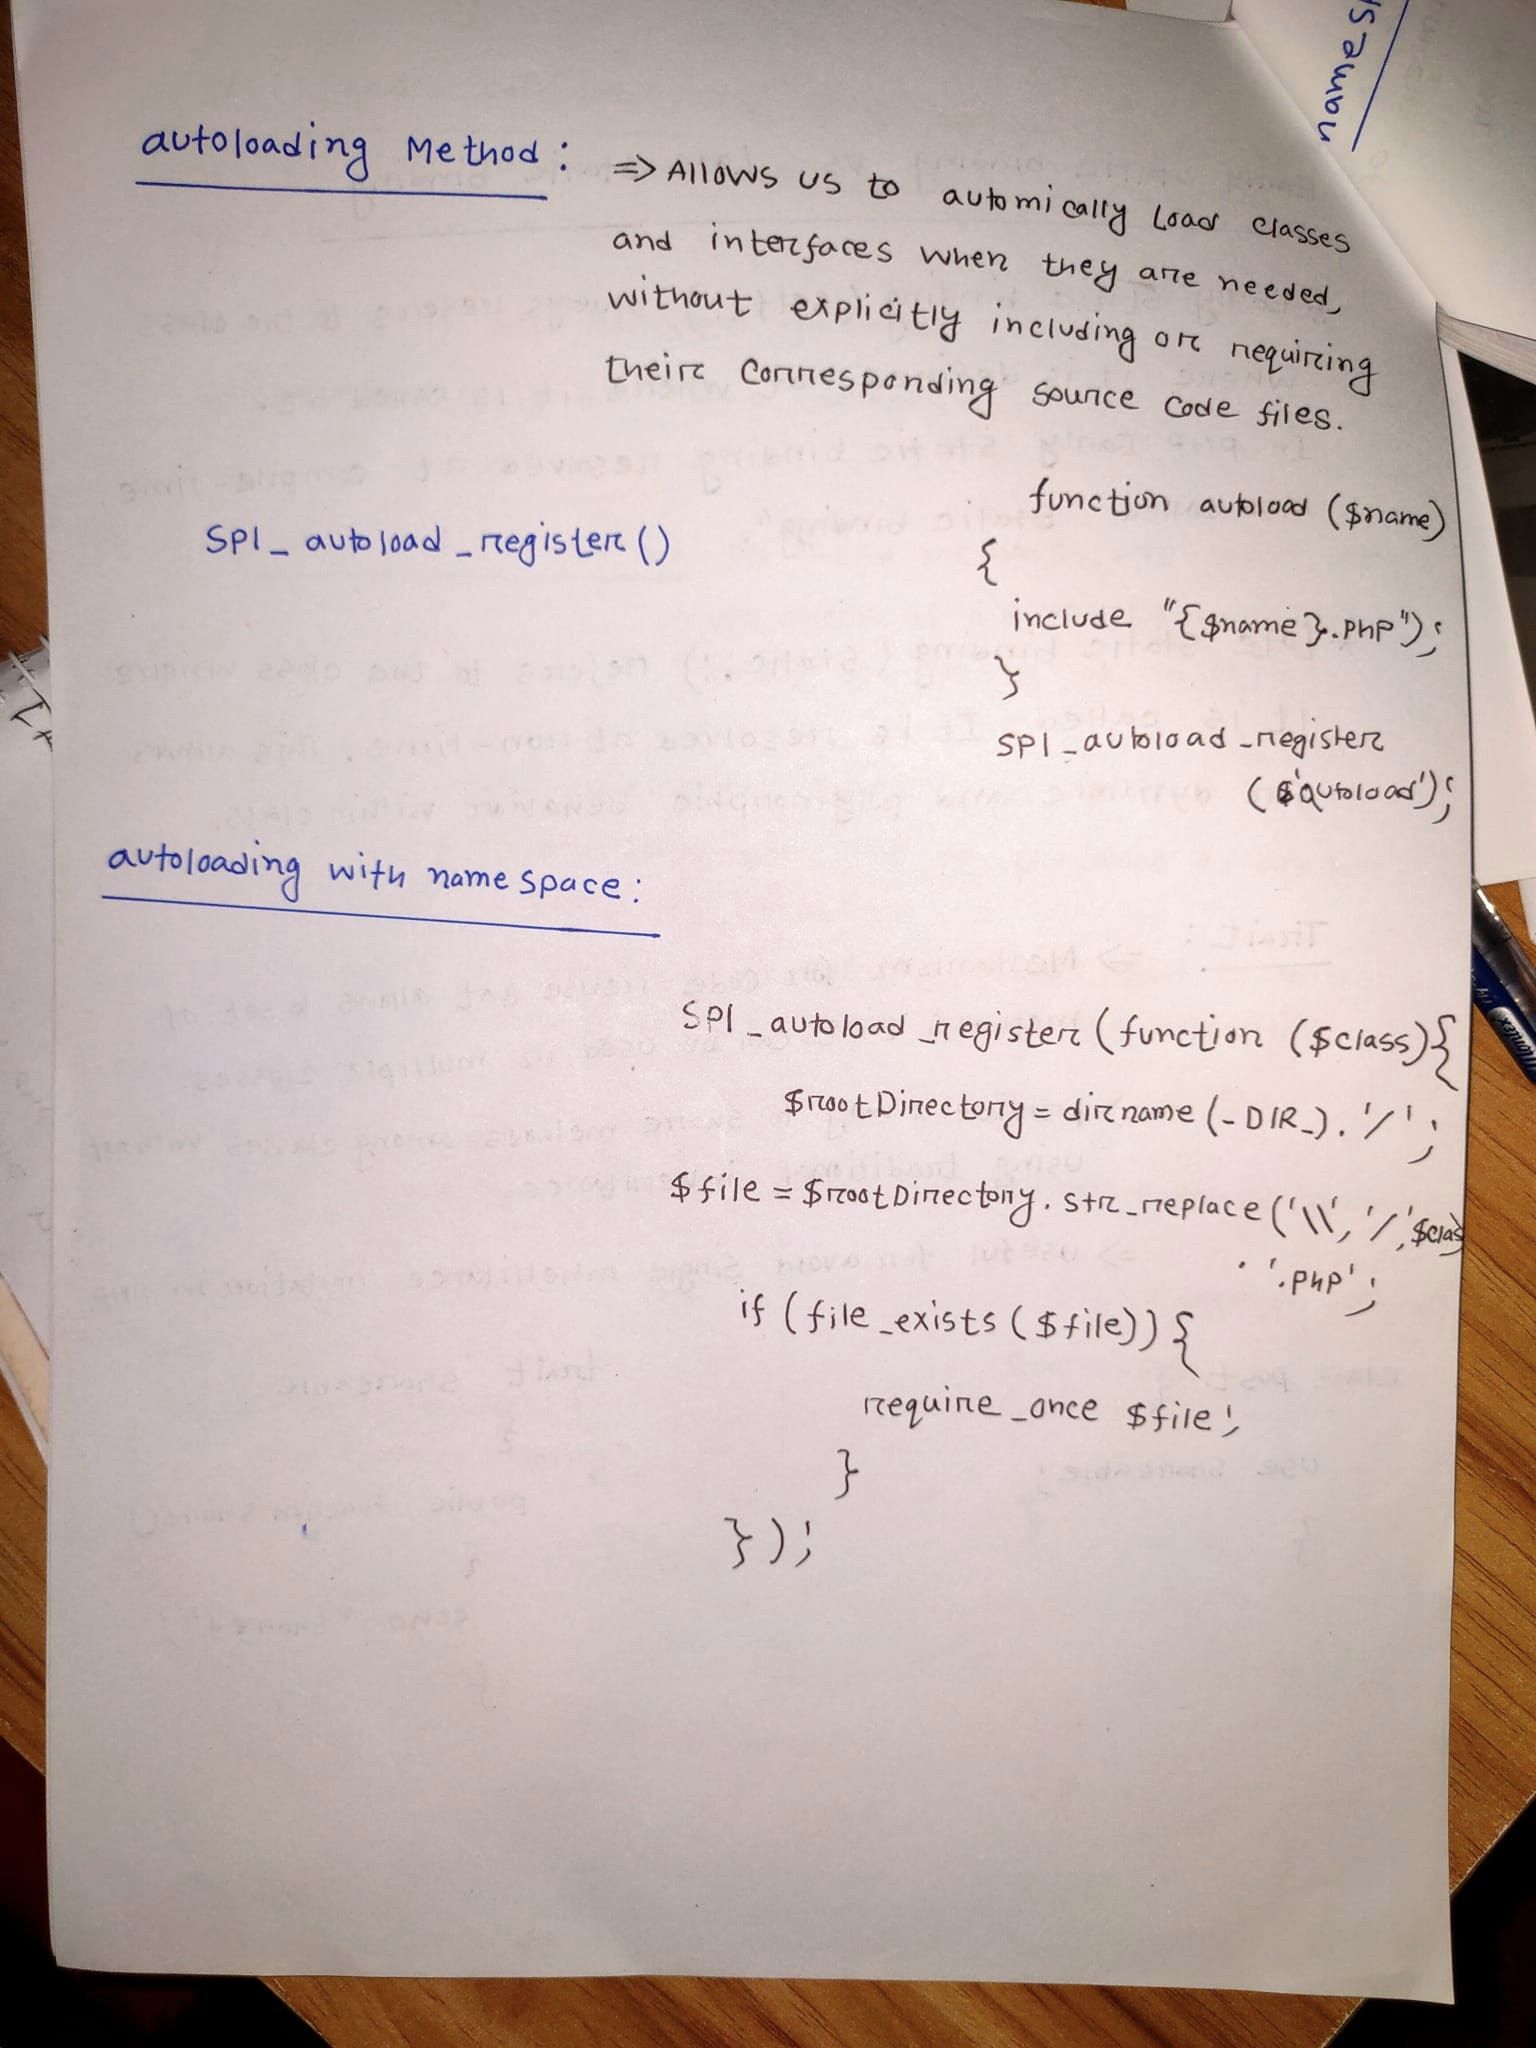 autoloading Method:
=> Allows us to automically Load classes
and interfaces when they are needed,
without explicitly including or requiring
their corresponding source code files.
spl_autoload_register()
function autoload ($name)
{
include "{$name}.php");
}
spl_autoload_register
('autoload');
autoloading with namespace:
spl_autoload_register (function ($class){
$rootDirectory = dirname (_DIR_). '/';
$file = $rootDirectory. str_replace('\\', '/', $clas
. '.php';
if (file_exists ($file)) {
require_once $file;
}
});
names